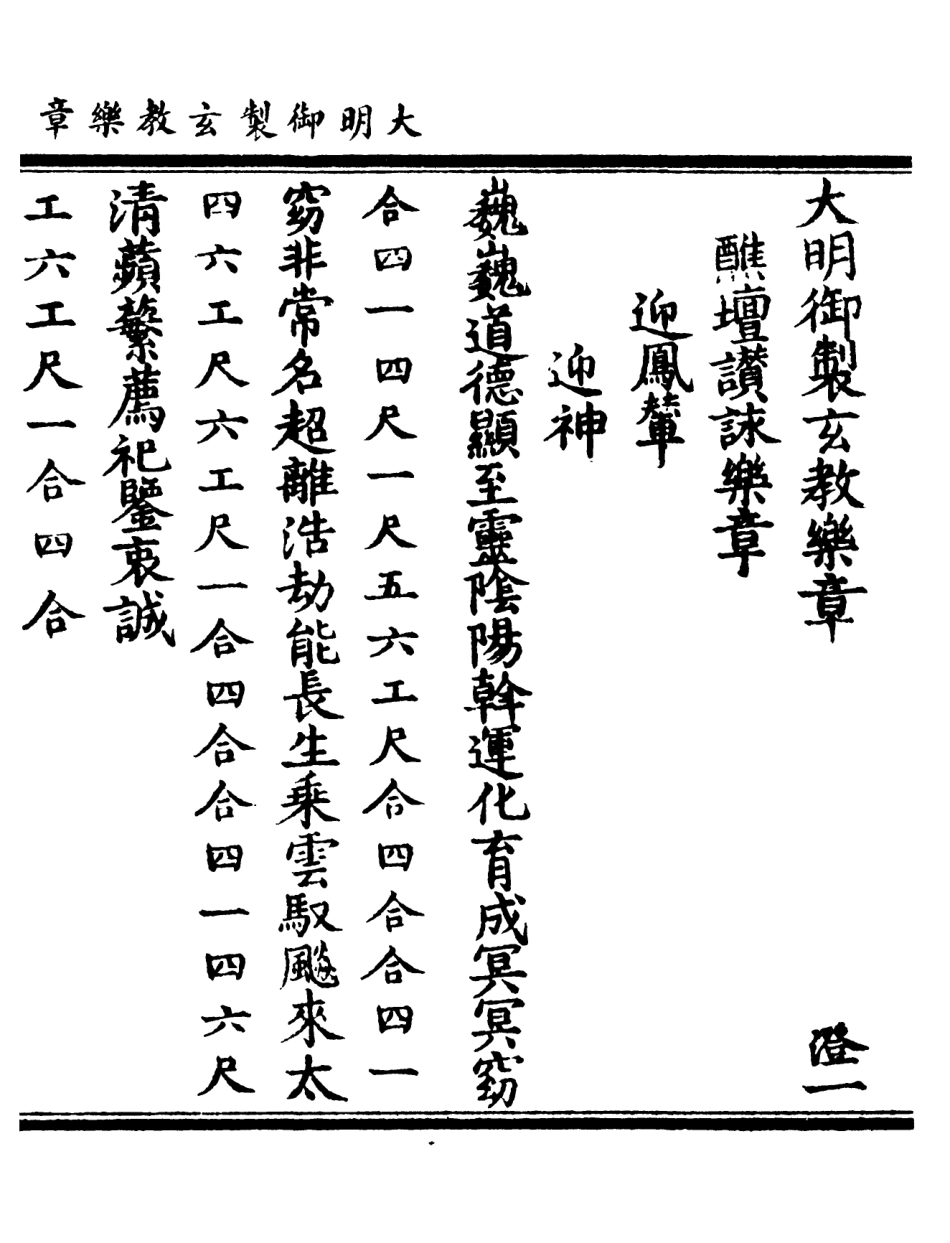 大明御製玄教樂章
大明御製玄教樂章 澄一
醮壇讚詠樂章
迎鳳輦
迎神
巍巍道德顯至靈陰陽斡運化育成冥冥窈
合四一四尺一尺五六工尺合四合合四一
窈非常名超離浩劫能長生乗雲馭飈來太
四六工尺六工尺一合四合合四一四六尺
清蘋蘩薦祀鑒衷誠
工六工尺一合四合